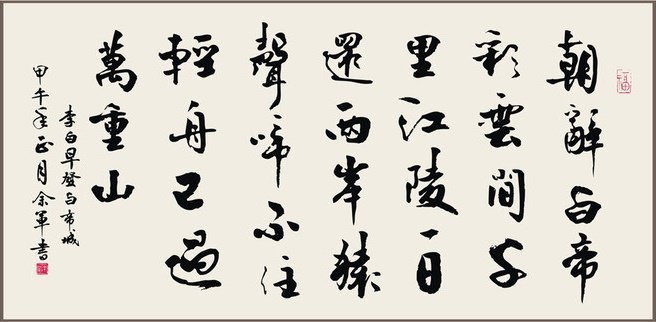 朝辭白帝
彩雲間千
里江陵一日
還兩岸猿
聲啼不住
輕舟已過
萬重山
李白早發白帝城
甲午年正月余軍書